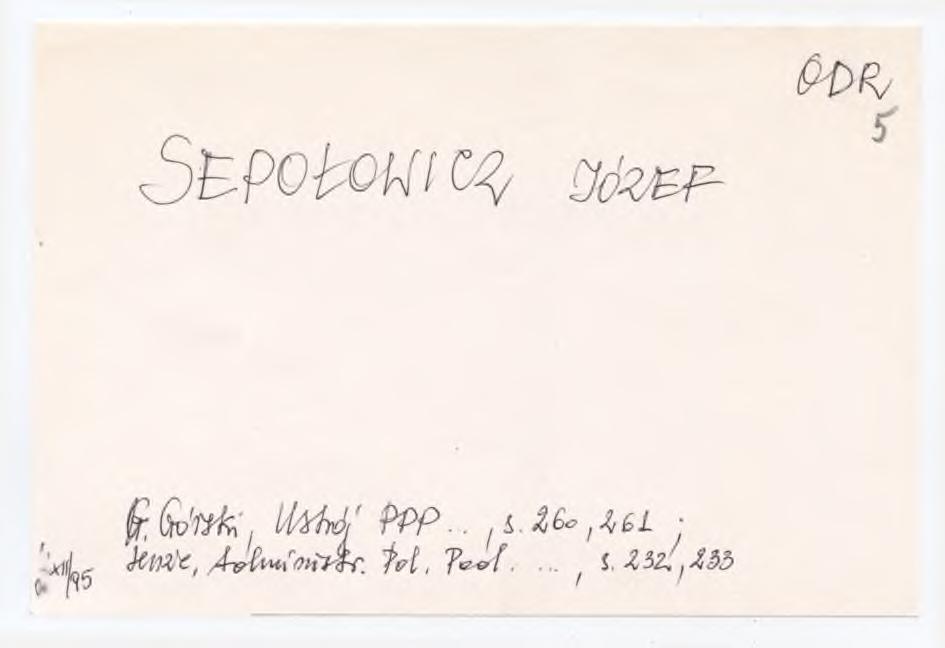 ODR
5
SEPOŁOWICZ JÓZEF
G. Górski, Ustrój PPP..., s. 260, 261;
tenże, Administr. Pol. Podz. ..., s. 232, 233
XII/95